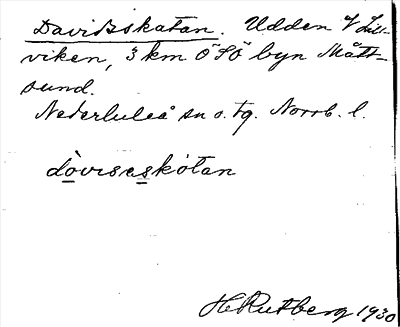 Davidskatan. Udden V Lill-
viken, 3 km ÖSÖ byn Mått-
sund.
Nederluleå sn o. tg. Norrb. l.
dòvıseskòtan
H Rutberg 1930